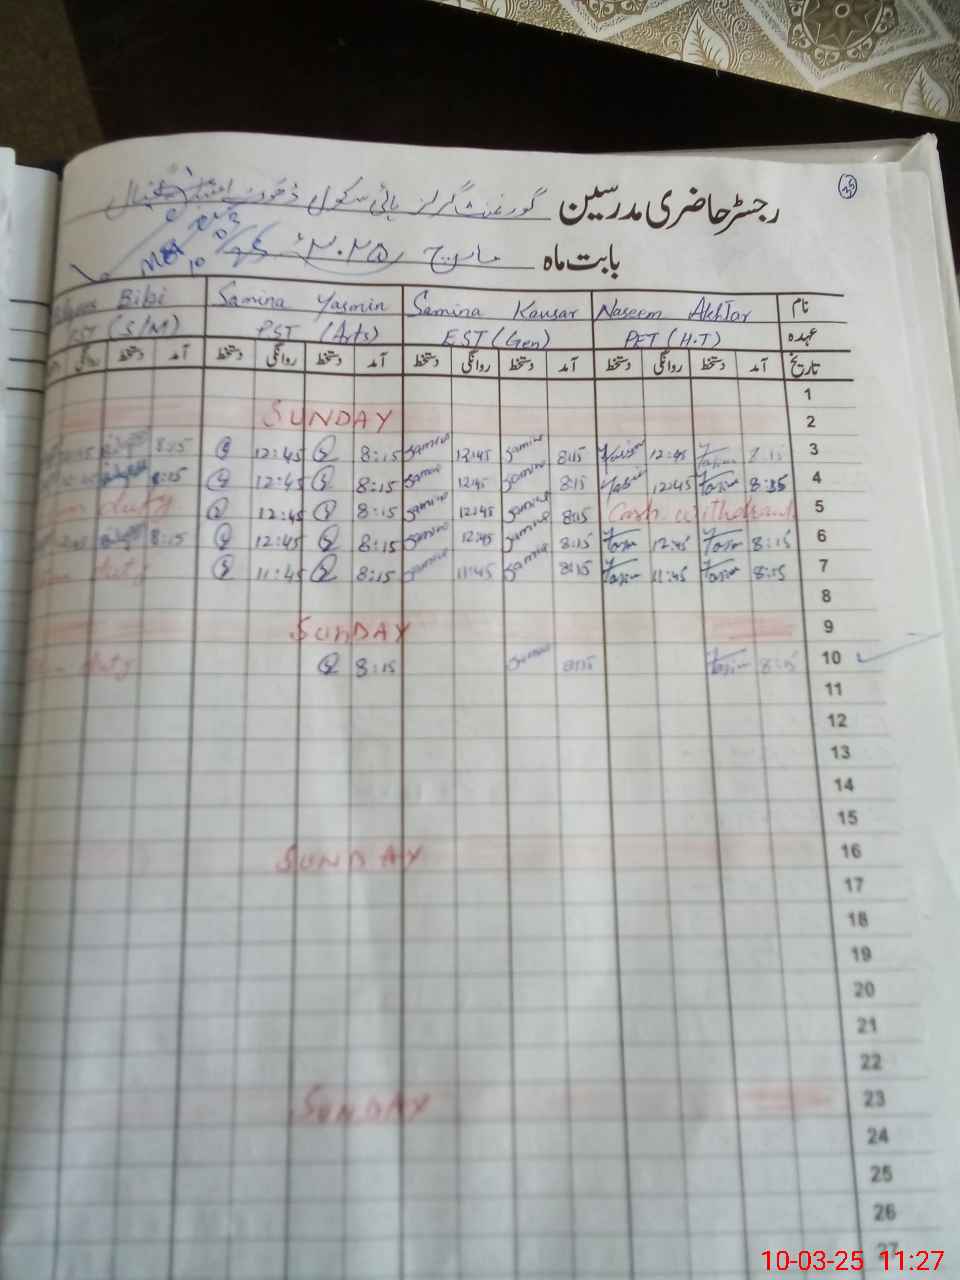 35
رجسٹر حاضری مدرسین گورنمنٹ گرلز ہائی سکول
بابت ماہ مارچ ۲۰۲۵ء
نام Naseem Akhtar Samina Kausar Samina Yasmin Bibi
عہدہ PET (H.T) EST (Gen) PST (Arts) (S/M)
تاریخ آمد دستخط روانگی دستخط آمد دستخط روانگی دستخط آمد دستخط روانگی دستخط آمد دستخط روانگی
1
2 SUNDAY
3 8:15 12:45 8:15 Samina 12:45 Samina 8:15 12:45 8:15
4 8:15 12:45 8:15 Samina 12:45 Samina 8:15 12:45 8:15
5 Cash withdrawal 8:15 Samina 12:45 Samina 8:15 12:45 duty
6 8:15 12:45 8:15 Samina 12:45 Samina 8:15 12:45 8:15
7 8:15 11:45 8:15 Samina 11:45 Samina 8:15 11:45 duty
8
9 SUNDAY
10 8:15 8:15 Samina 8:15 duty
11
12
13
14
15
16 SUNDAY
17
18
19
20
21
22
23 SUNDAY
24
25
26
27
10-03-25 11:27